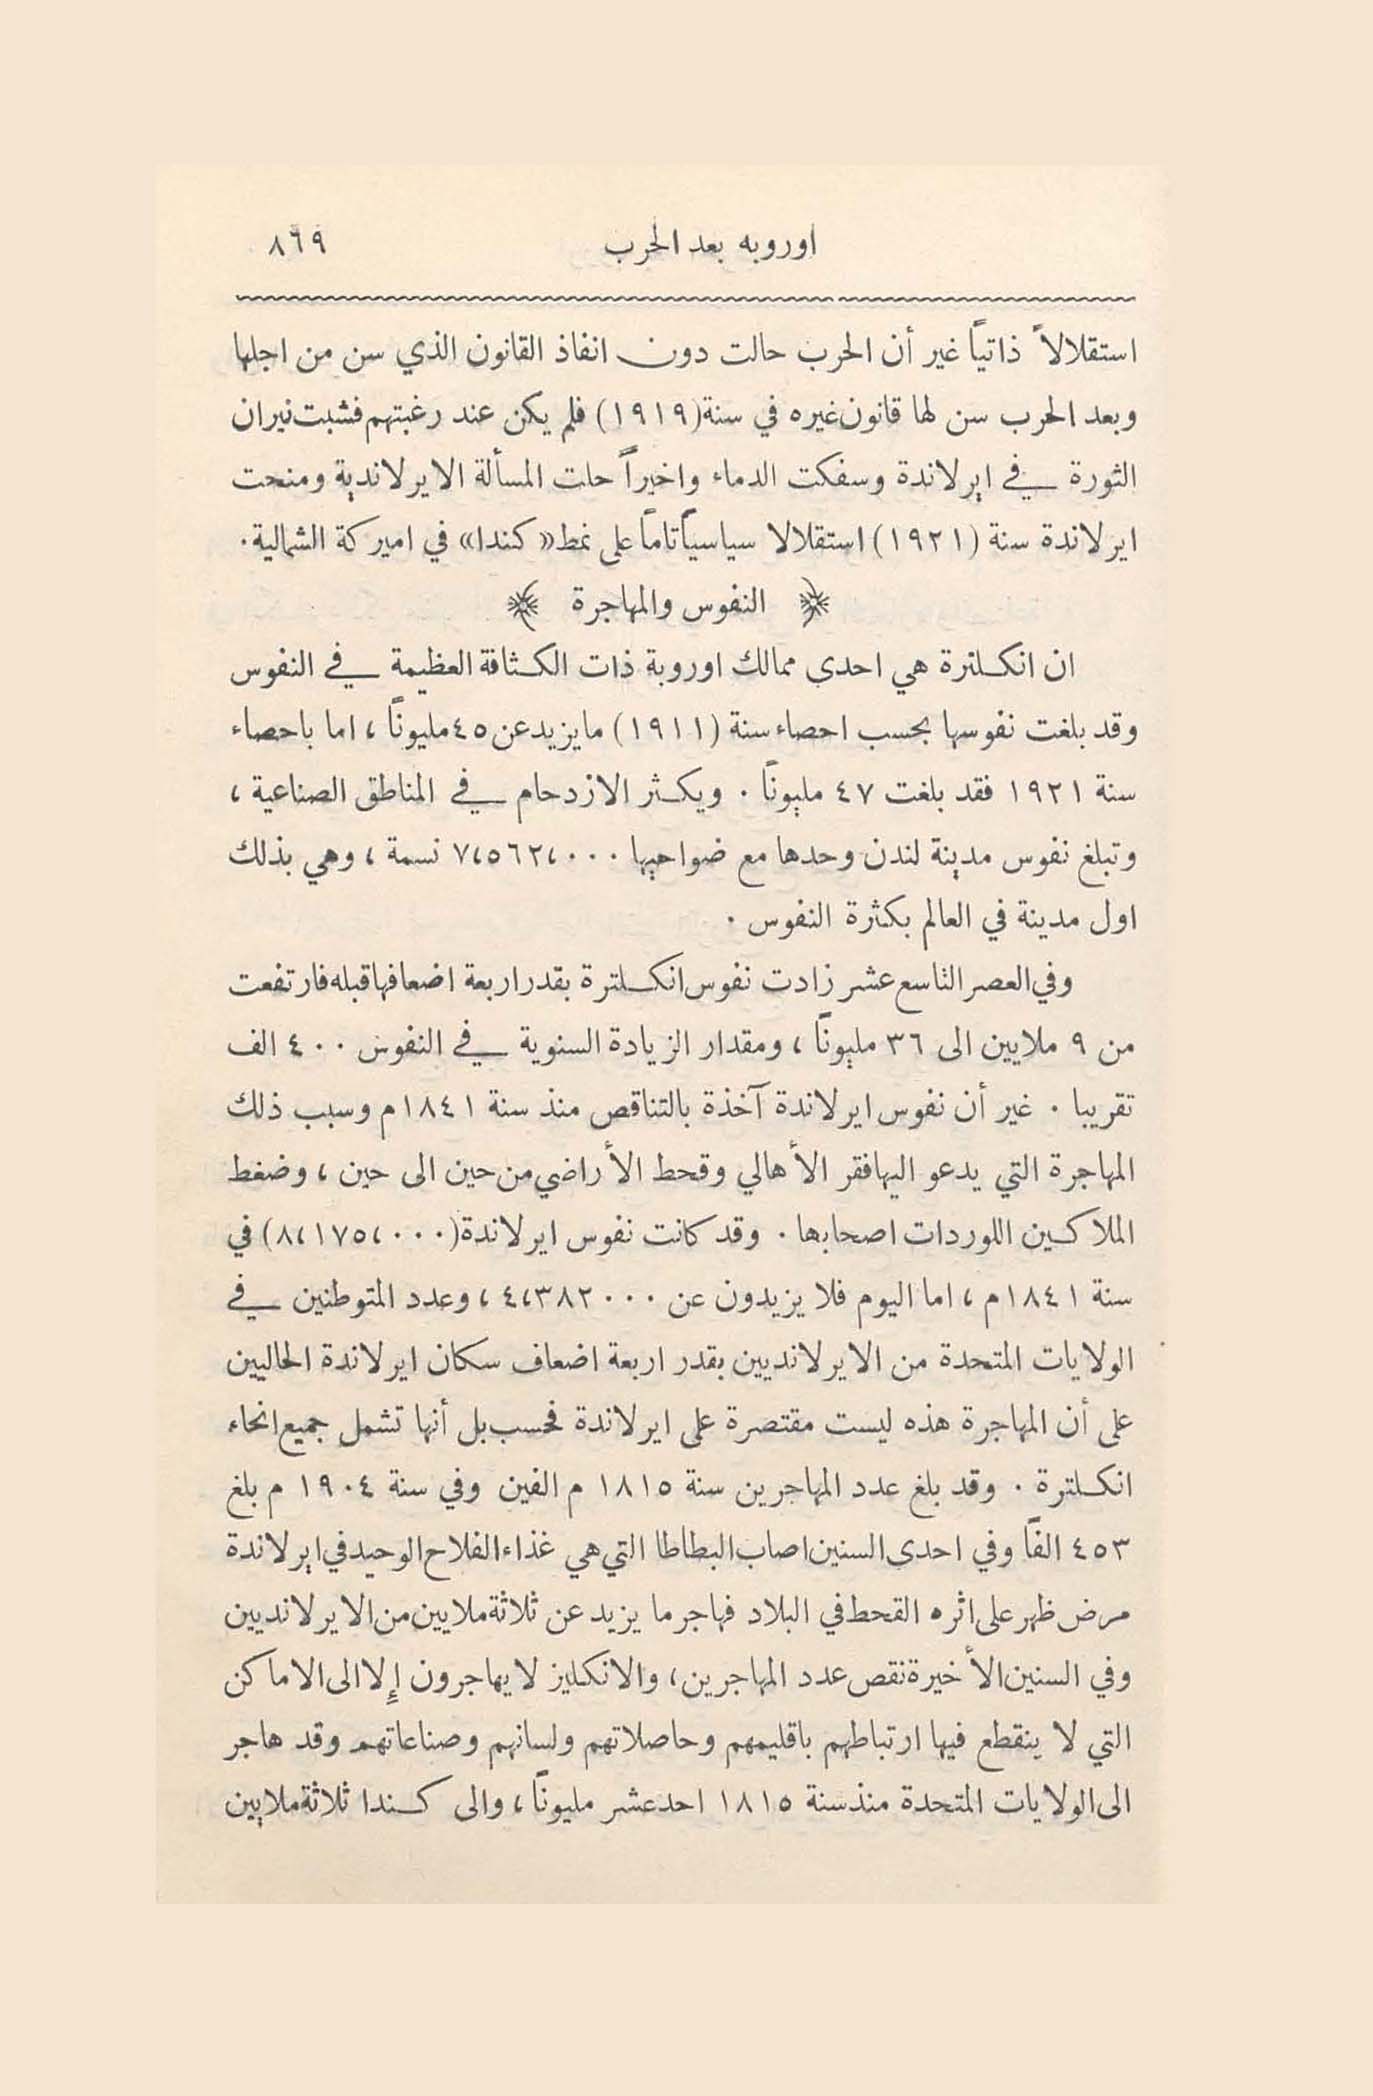 اوروبه بعد الحرب ٨٦٩
استقلالاً ذاتياً غير أن الحرب حالت دون انفاذ القانون الذي سن من اجلها
وبعد الحرب سن لها قانون غيره في سنة (١٩١٩) فلم يكن عند رغبتهم فشبت نيران
الثورة في ايرلاندة وسفكت الدماء واخيراً حلت المسألة الايرلاندية ومنحت
ايرلاندة سنة (١٩٢١) استقلالا سياسياً تاماً على نمط «كندا» في اميركة الشمالية.
﴿ النفوس والمهاجرة ﴾
ان انكلترة هي احدى ممالك اوروبة ذات الكثافة العظيمة في النفوس
وقد بلغت نفوسها بحسب احصاء سنة (١٩١١) ما يزيد عن ٤٥ مليوناً ، اما باحصاء
سنة ١٩٢١ فقد بلغت ٤٧ مليوناً . ويكثر الازدحام في المناطق الصناعية ،
وتبلغ نفوس مدينة لندن وحدها مع ضواحيها ٧،٥٦٢،٠٠٠ نسمة ، وهي بذلك
اول مدينة في العالم بكثرة النفوس .
وفي العصر التاسع عشر زادت نفوس انكلترة بقدر اربعة اضعافها قبله فارتفعت
من ٩ ملايين الى ٣٦ مليوناً ، ومقدار الزيادة السنوية في النفوس ٤٠٠ الف
تقريبا . غير أن نفوس ايرلاندة آخذة بالتناقص منذ سنة ١٨٤١م وسبب ذلك
المهاجرة التي يدعو اليها فقر الأهالي وقحط الأراضي من حين الى حين ، وضغط
الملاكين اللوردات اصحابها . وقد كانت نفوس ايرلاندة (٨،١٧٥،٠٠٠) في
سنة ١٨٤١م ، اما اليوم فلا يزيدون عن ٤،٣٨٢٠٠٠ ، وعدد المتوطنين في
الولايات المتحدة من الايرلانديين بقدر اربعة اضعاف سكان ايرلاندة الحاليين
على أن المهاجرة هذه ليست مقتصرة على ايرلاندة فحسب بل أنها تشمل جميع انحاء
انكلترة . وقد بلغ عدد المهاجرين سنة ١٨١٥ م الفين وفي سنة ١٩٠٤ م بلغ
٤٥٣ الفاً وفي احدى السنين اصاب البطاطا التي هي غذاء الفلاح الوحيد في ايرلاندة
مرض ظهر على اثره القحط في البلاد فهاجر ما يزيد عن ثلاثة ملايين من الايرلانديين
وفي السنين الأخيرة نقص عدد المهاجرين ، والانكليز لا يهاجرون إلا الى الاماكن
التي لا ينقطع فيها ارتباطهم باقليمهم وحاصلاتهم ولسانهم وصناعاتهم وقد هاجر
الى الولايات المتحدة منذ سنة ١٨١٥ احد عشر مليوناً ، والى كندا ثلاثة ملايين